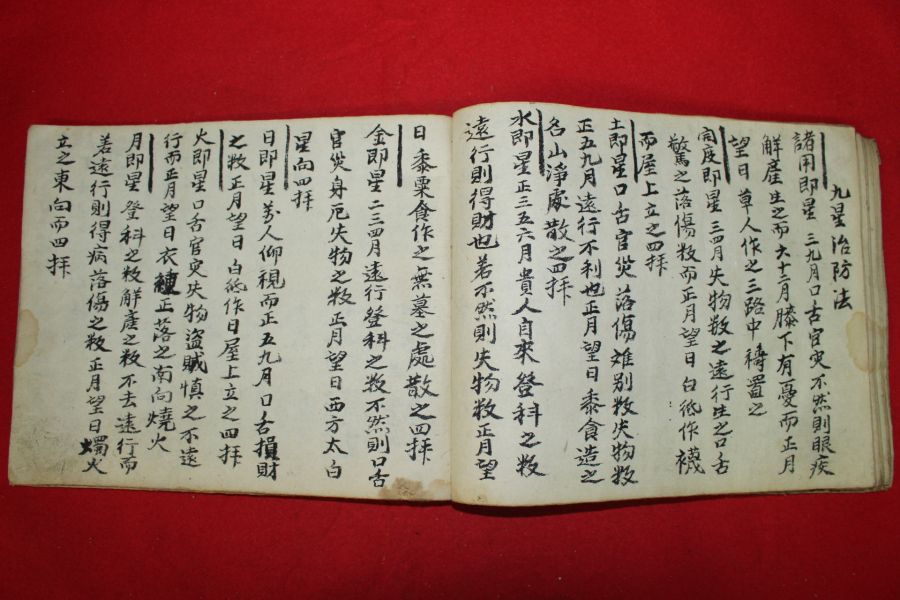 九星治防法
諸用即星 三九月口舌官灾不然則眼疾
解産生之而大十二月膝下有憂而正月
望日草人作之三路中禱置之
即星三四月失物数之遠行生之口舌
驚之落傷数而正月望日白紙作襪
而屋上立之四拜
土即星口舌官災落傷难别数失物数
正五九月遠行不利也正月望日黍食造之
名山淨處散之四拜
水即星正三五六月貴人自來登科之数
遠行則得財也若不然則失物数正月望
日黍粟食作之無墓之處散之四拜
金即星二三四月遠行登科之数不然則口舌
官災身厄失物之数正月望日西方太白
星向四拜
日即星万人仰視而正五九月口舌損財
之数正月望日白紙作日屋上立之四拜
火即星口舌官灾失物盜賊慎之不遠
行而正月望日衣正落之南向燒火
月即星登科之数解産之数不去遠行而
若遠行則得病落傷之数正月望日燭火
立之東向而四拜